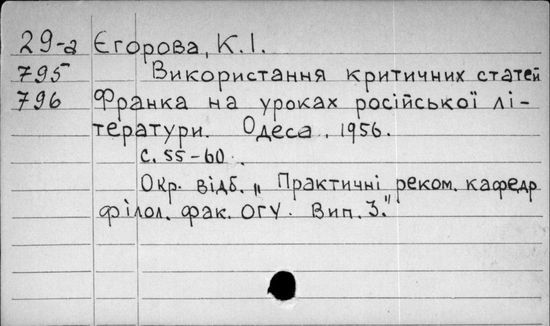 29-а Єгорова, К.І.
795 Використання критичних статей
796 Франка на уроках російської лі-
тератури. Одеса. 1956.
с. 55-60.
Окр. відб. „ Практичні реком. кафедр
філол. фак. ОГУ. Вип. 3."